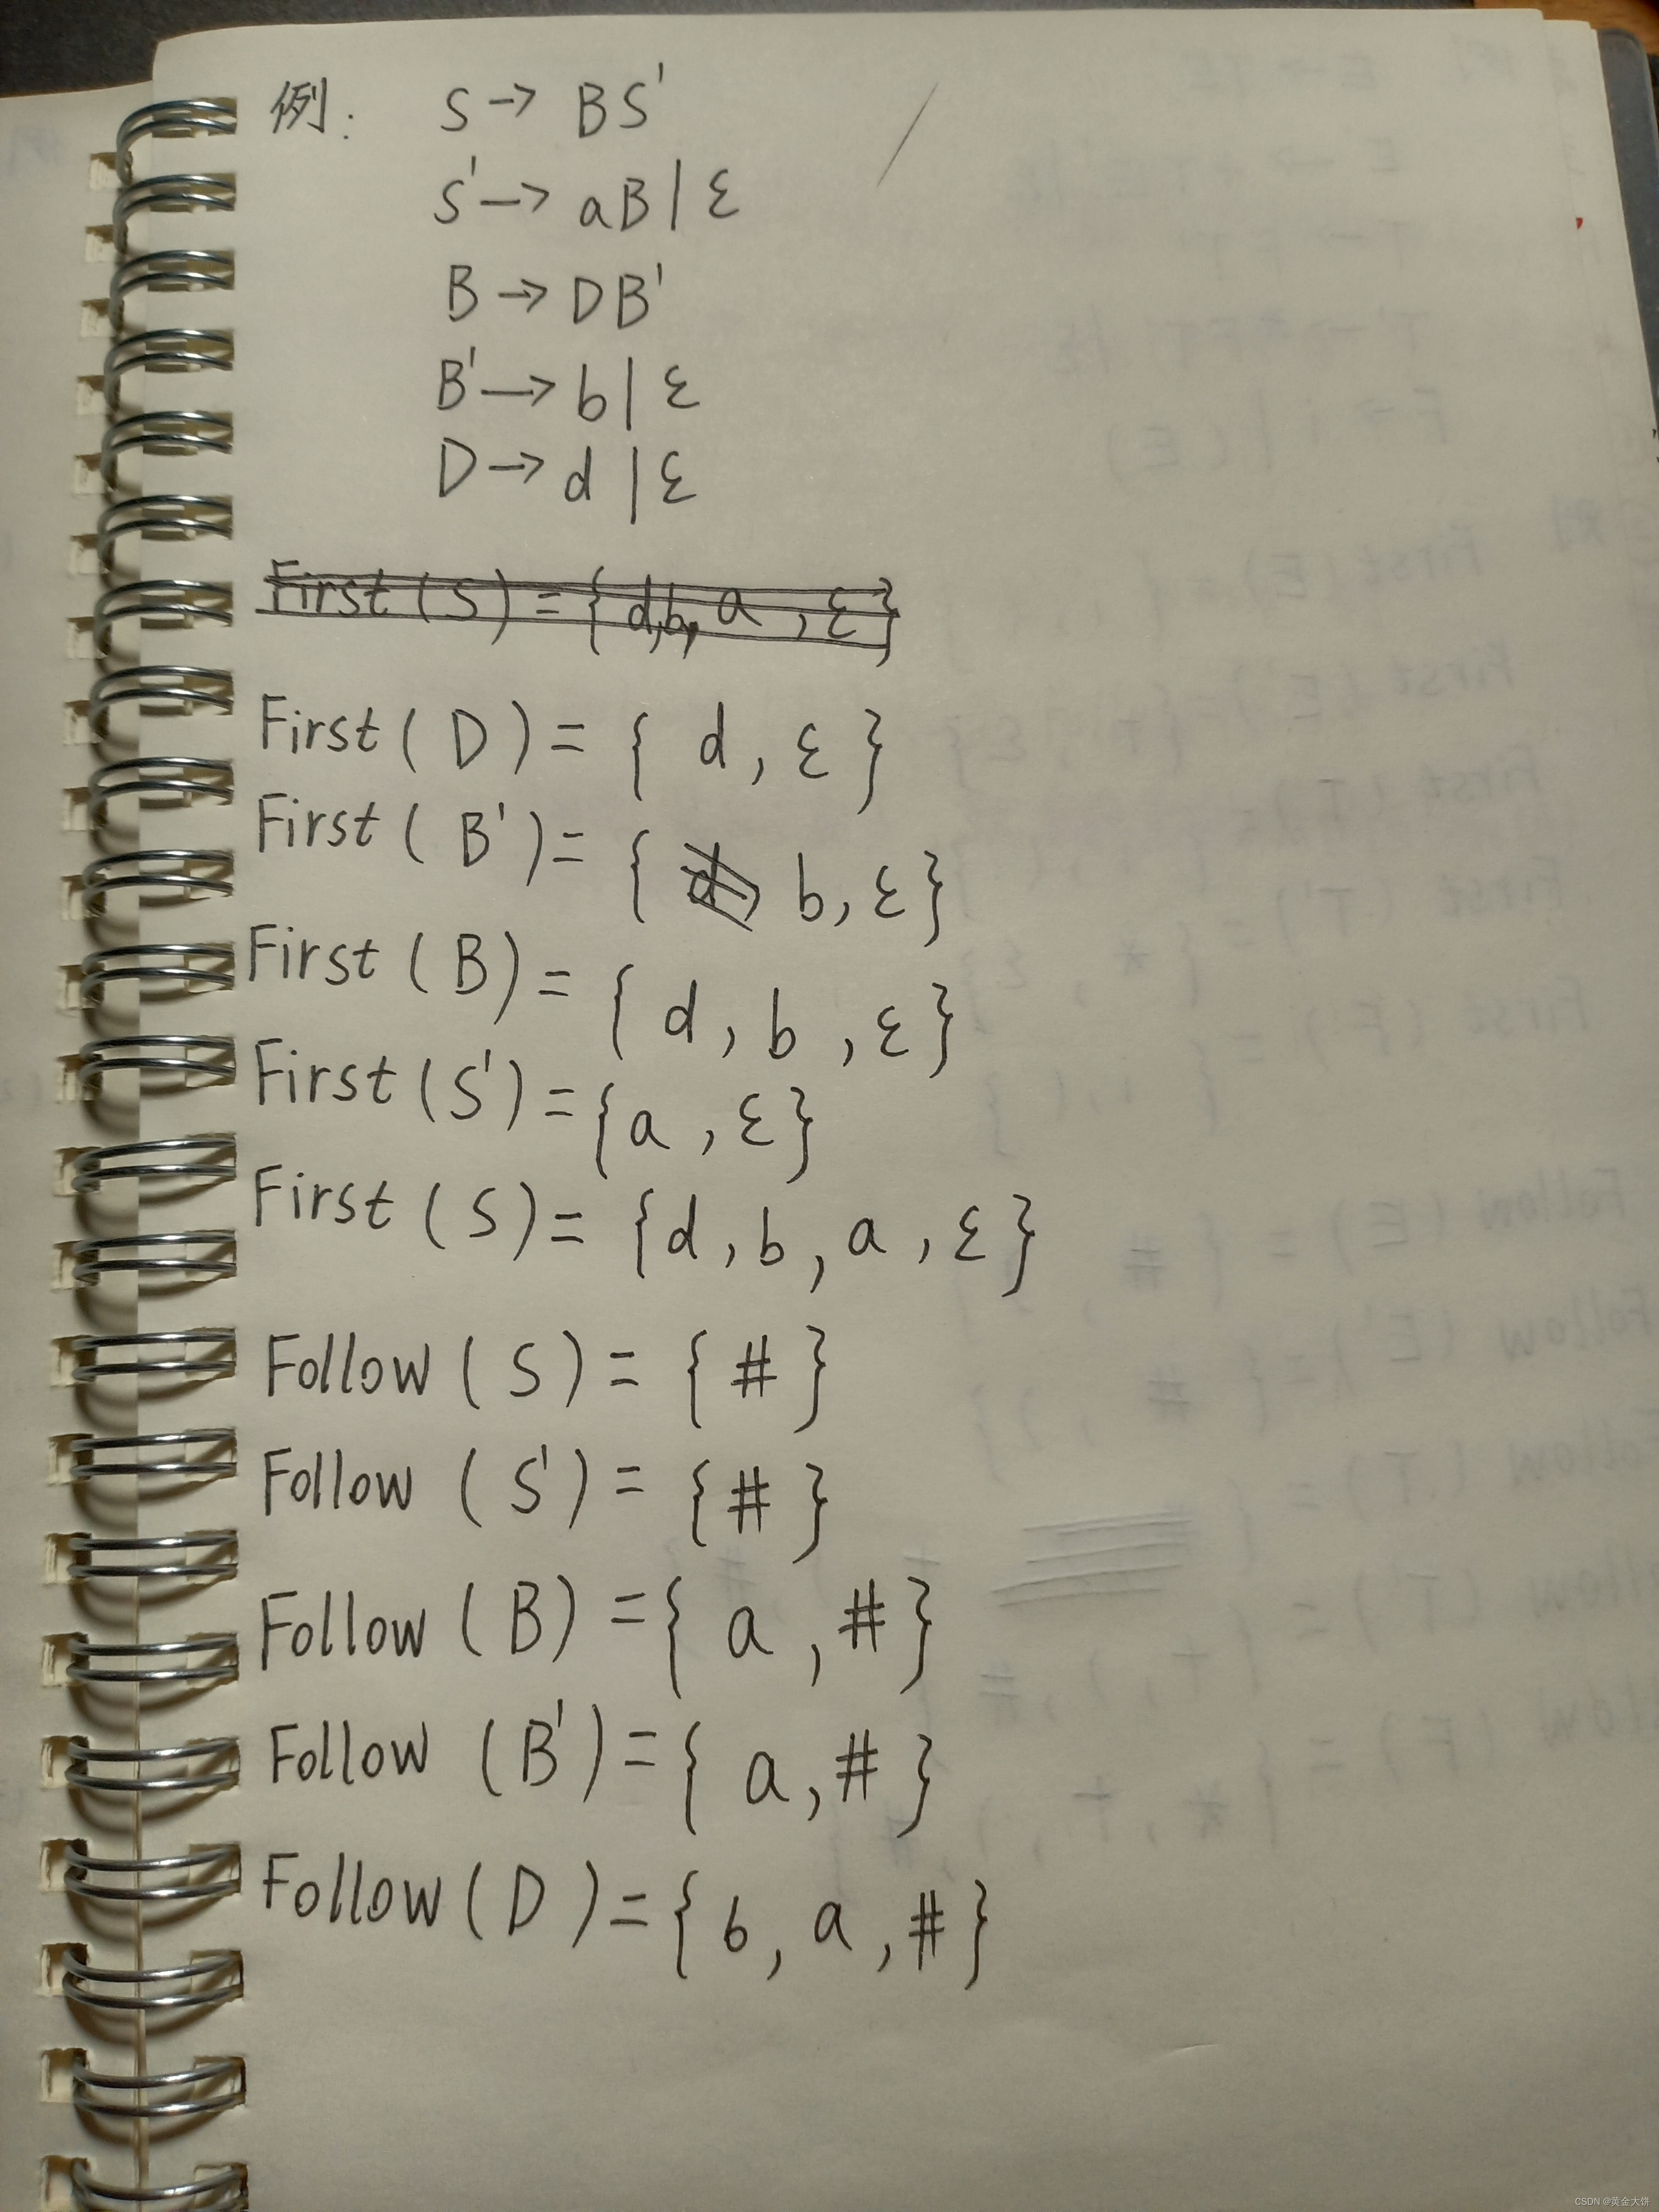 例: S → BS'
S' → aB | ε
B → DB'
B' → b | ε
D → d | ε
First(S) = {d,b,a,ε}
First(D) = {d,ε}
First(B') = {d, b,ε}
First(B) = {d,b,ε}
First(S') = {a,ε}
First(S) = {d,b,a,ε}
Follow(S) = {#}
Follow(S') = {#}
Follow(B) = {a,#}
Follow(B') = {a,#}
Follow(D) = {b,a,#}
CSDN @黄金大饼